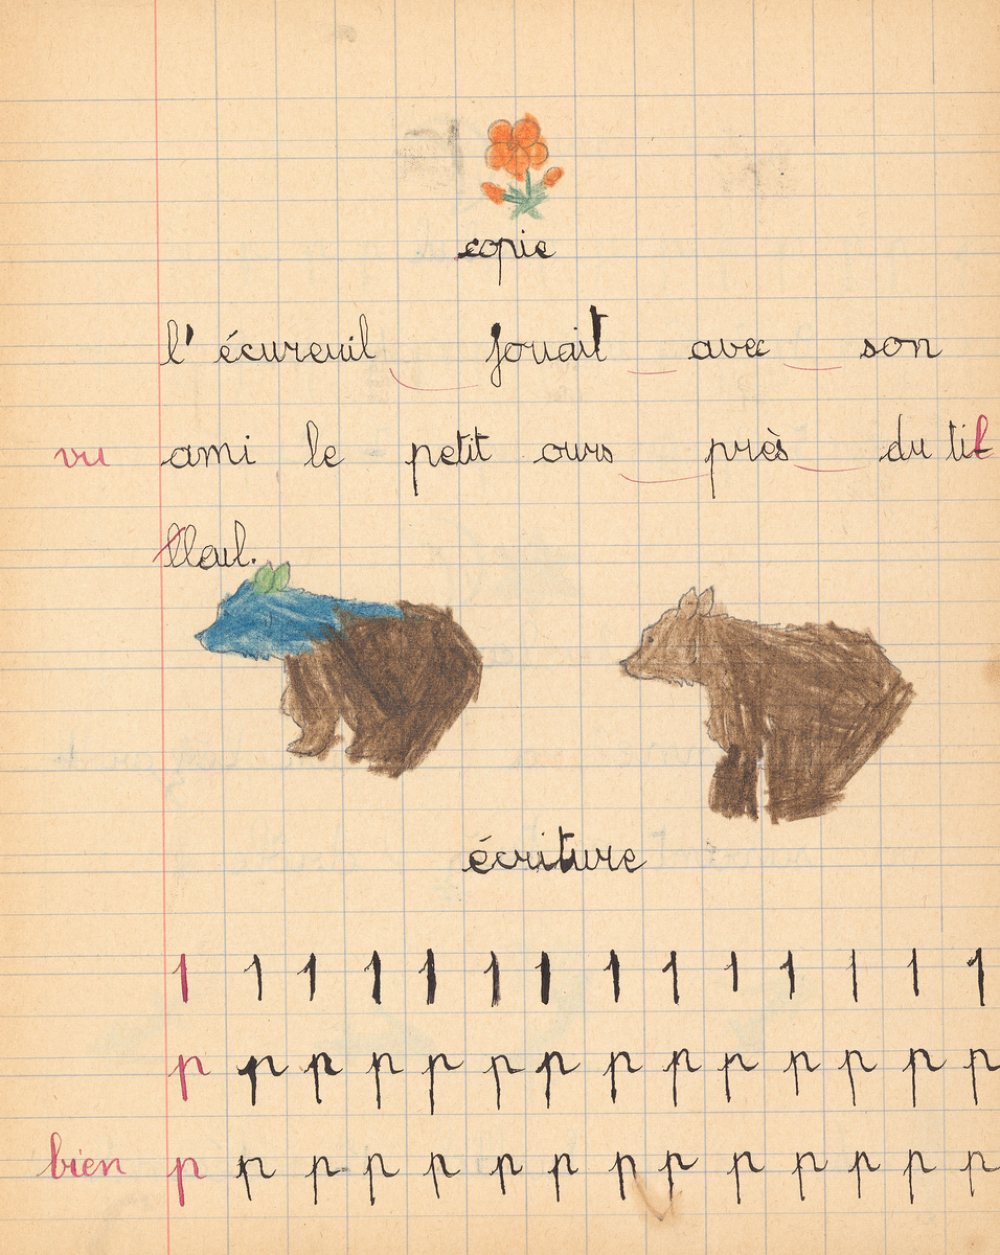 copie
l'écureuil jouait avec son
vu ami le petit ours près du til
lleul.
écriture
1 1 1 1 1 1 1 1 1 1 1 1 1 1
p p p p p p p p p p p p p p
bien p p p p p p p p p p p p p p